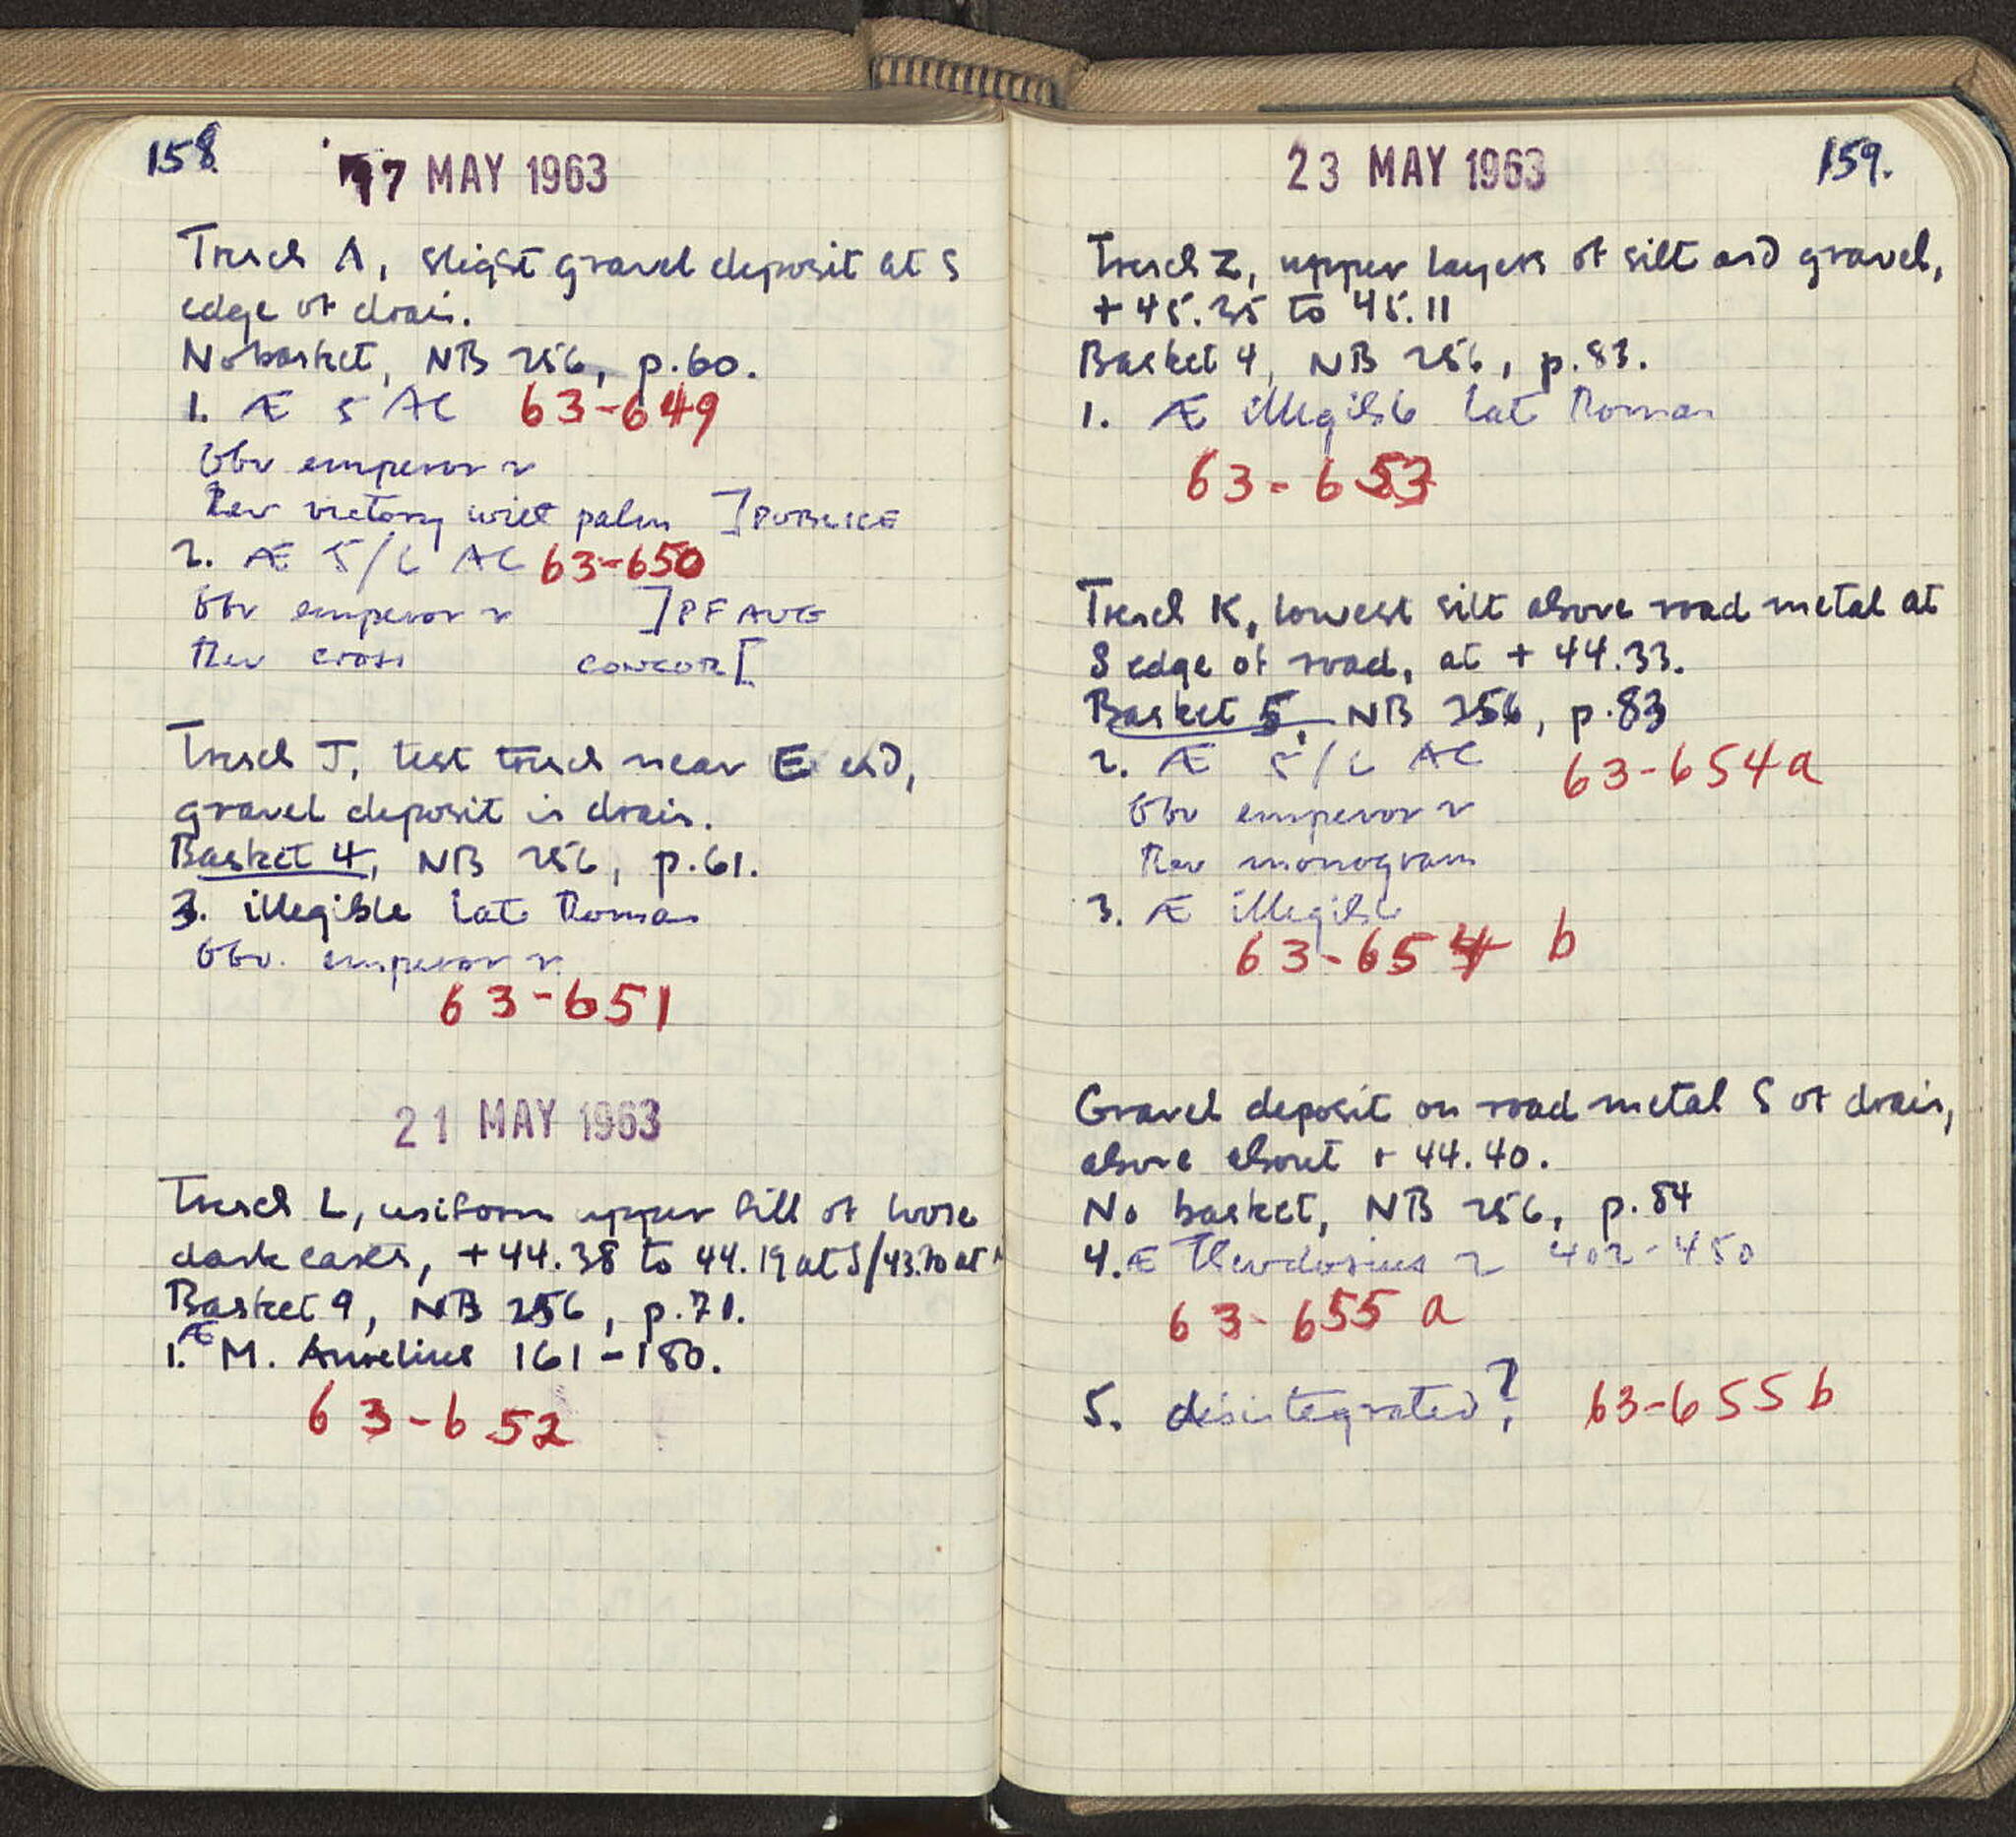 158
17 MAY 1963
Trench A, slight gravel deposit at S
edge of drain.
No basket, NB 256, p.60.
1. Æ 5 AC 63-649
Obv emperor r
Rev victory with palm ]PUBLICE
2. Æ 5/L AC 63-650
Obv emperor r ]PF AUG
Rev cross CONCOR[
Trench J, test trench near E end,
gravel deposit in drain.
Basket 4, NB 256, p.61.
3. illegible late Roman
Obv. emperor r.
63-651
21 MAY 1963
Trench L, uniform upper fill of loose
dark earth, +44.38 to 44.19 at S/43.70 at N
Basket 9, NB 256, p.71.
1. Æ M. Aurelius 161-180.
63-652
23 MAY 1963
159.
Trench Z, upper layers of silt and gravel,
+45.35 to 45.11
Basket 4, NB 256, p.83.
1. Æ illegible late Roman
63-653
Trench K, lowest silt above road metal at
S edge of road, at +44.33.
Basket 5, NB 256, p.83
2. Æ 5/L AC 63-654a
Obv emperor r
Rev monogram
3. Æ illegible
63-654 b
Gravel deposit on road metal S of drain,
above about +44.40.
No basket, NB 256, p.84
4. Æ Theodosius 2 402-450
63-655 a
5. disintegrated? 63-655 b